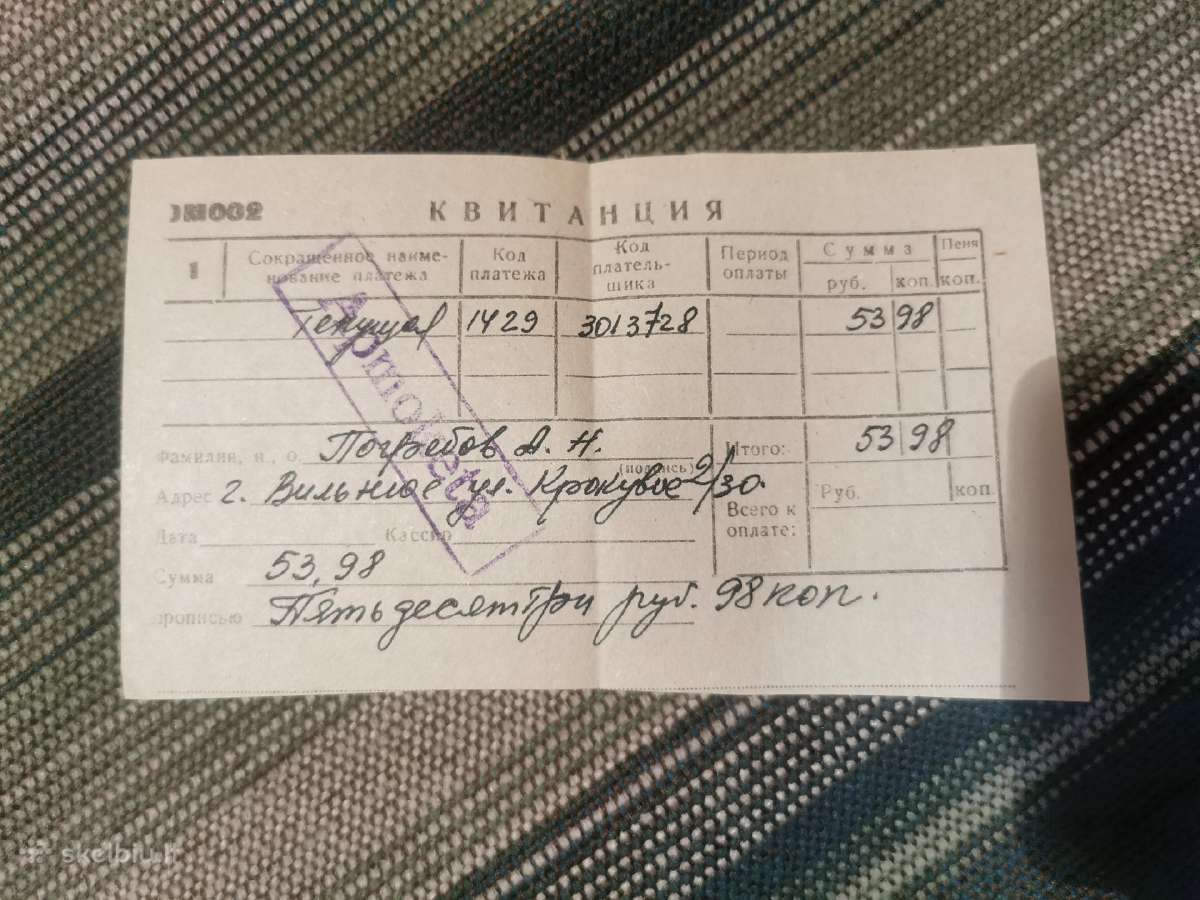 КВИТАНЦИЯ
1 Сокращенное наиме-нование платежа Код платежа Код платель-щика Период оплаты Сумма руб. коп. Пеня коп.
Текущая 1429 3013728 53 98
Apmokėta
Фамилия, и., о. Погребов А. Н. Итого: 53 98
(подпись)
Адрес г. Вильнюс ул. 9/30. Руб. коп.
Дата Кассир Всего к оплате:
Сумма 53,98
прописью Пятьдесят три руб. 98 коп.
skelbiu.lt